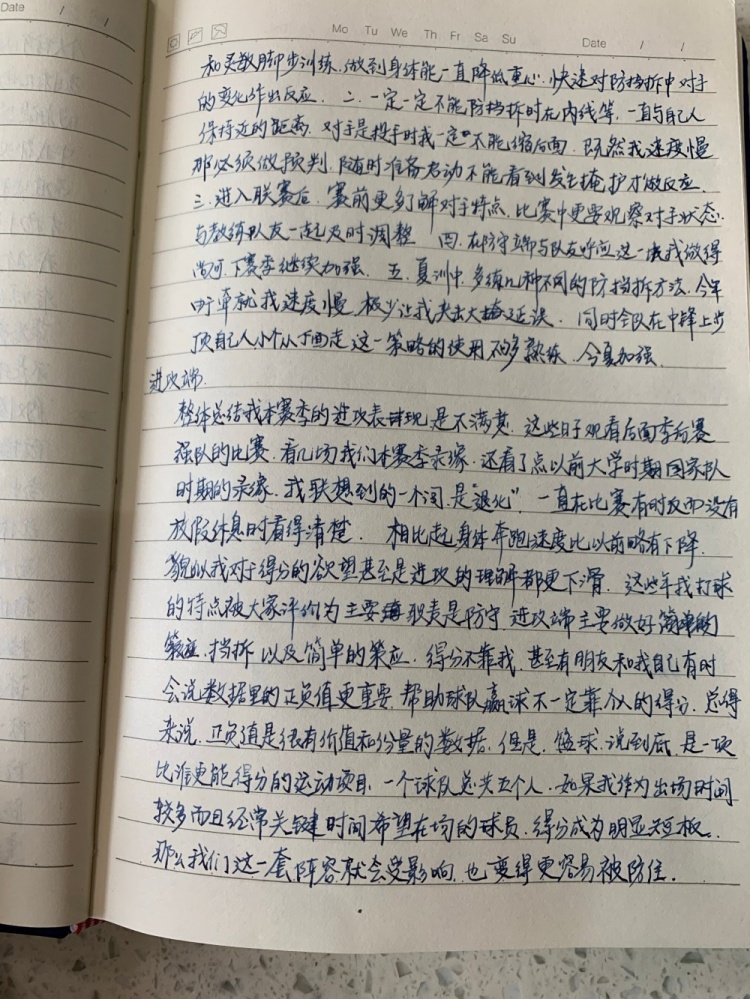 Date / /
Mo Tu We Th Fr Sa Su Date / /
和灵敏脚步训练,做到身体能一直降低重心,快速对防挡拆中对手
的变化作出反应. 二.一定一定不能防挡拆时在内线等,一直与自己人
保持近的距离,对手是投手时我一定不能缩后面,既然我速度慢
那必须做预判,随时准备启动不能看到发生掩护才做反应.
三.进入联赛后,赛前更多了解对手特点,比赛中更要观察对手状态
与教练队友一起及时调整 四.在防守端与队友呼应这一点我做得
尚可,下赛季继续加强. 五.夏训中,多练几种不同的防挡拆方法,今年
迁就我速度慢,极少让我夹出大掩延误,同时全队在中锋上步
顶自己人,小个从下面走这一策略的使用不够熟练,今夏加强.
进攻端.
整体总结我本赛季的进攻表现是不满意,这些日子观看后面季后赛
强队的比赛,看几场我们本赛季录像,还看了点以前大学时期国家队
时期的录像,我联想到的一个词是“退化”,一直在比赛有时反而没有
放假休息时看得清楚. 相比起身体奔跑速度比以前略有下降,
貌似我对于得分的欲望甚至是进攻的理解都更下滑,这些年我打球
的特点被大家评价为主要职责是防守,进攻端主要做好
挡拆以及简单的策应,得分不靠我,甚至有朋友和我自己有时
会说数据里的正负值更重要,帮助球队赢球不一定靠个人的得分,总得
来说,正负值是很有价值和份量的数据,但是,篮球,说到底,是一项
比谁更能得分的运动项目,一个球队总共五个人,如果我作为出场时间
较多而且经常关键时间希望在场的球员,得分成为明显短板,
那么我们这一套阵容就会受影响,也变得更容易被防住.